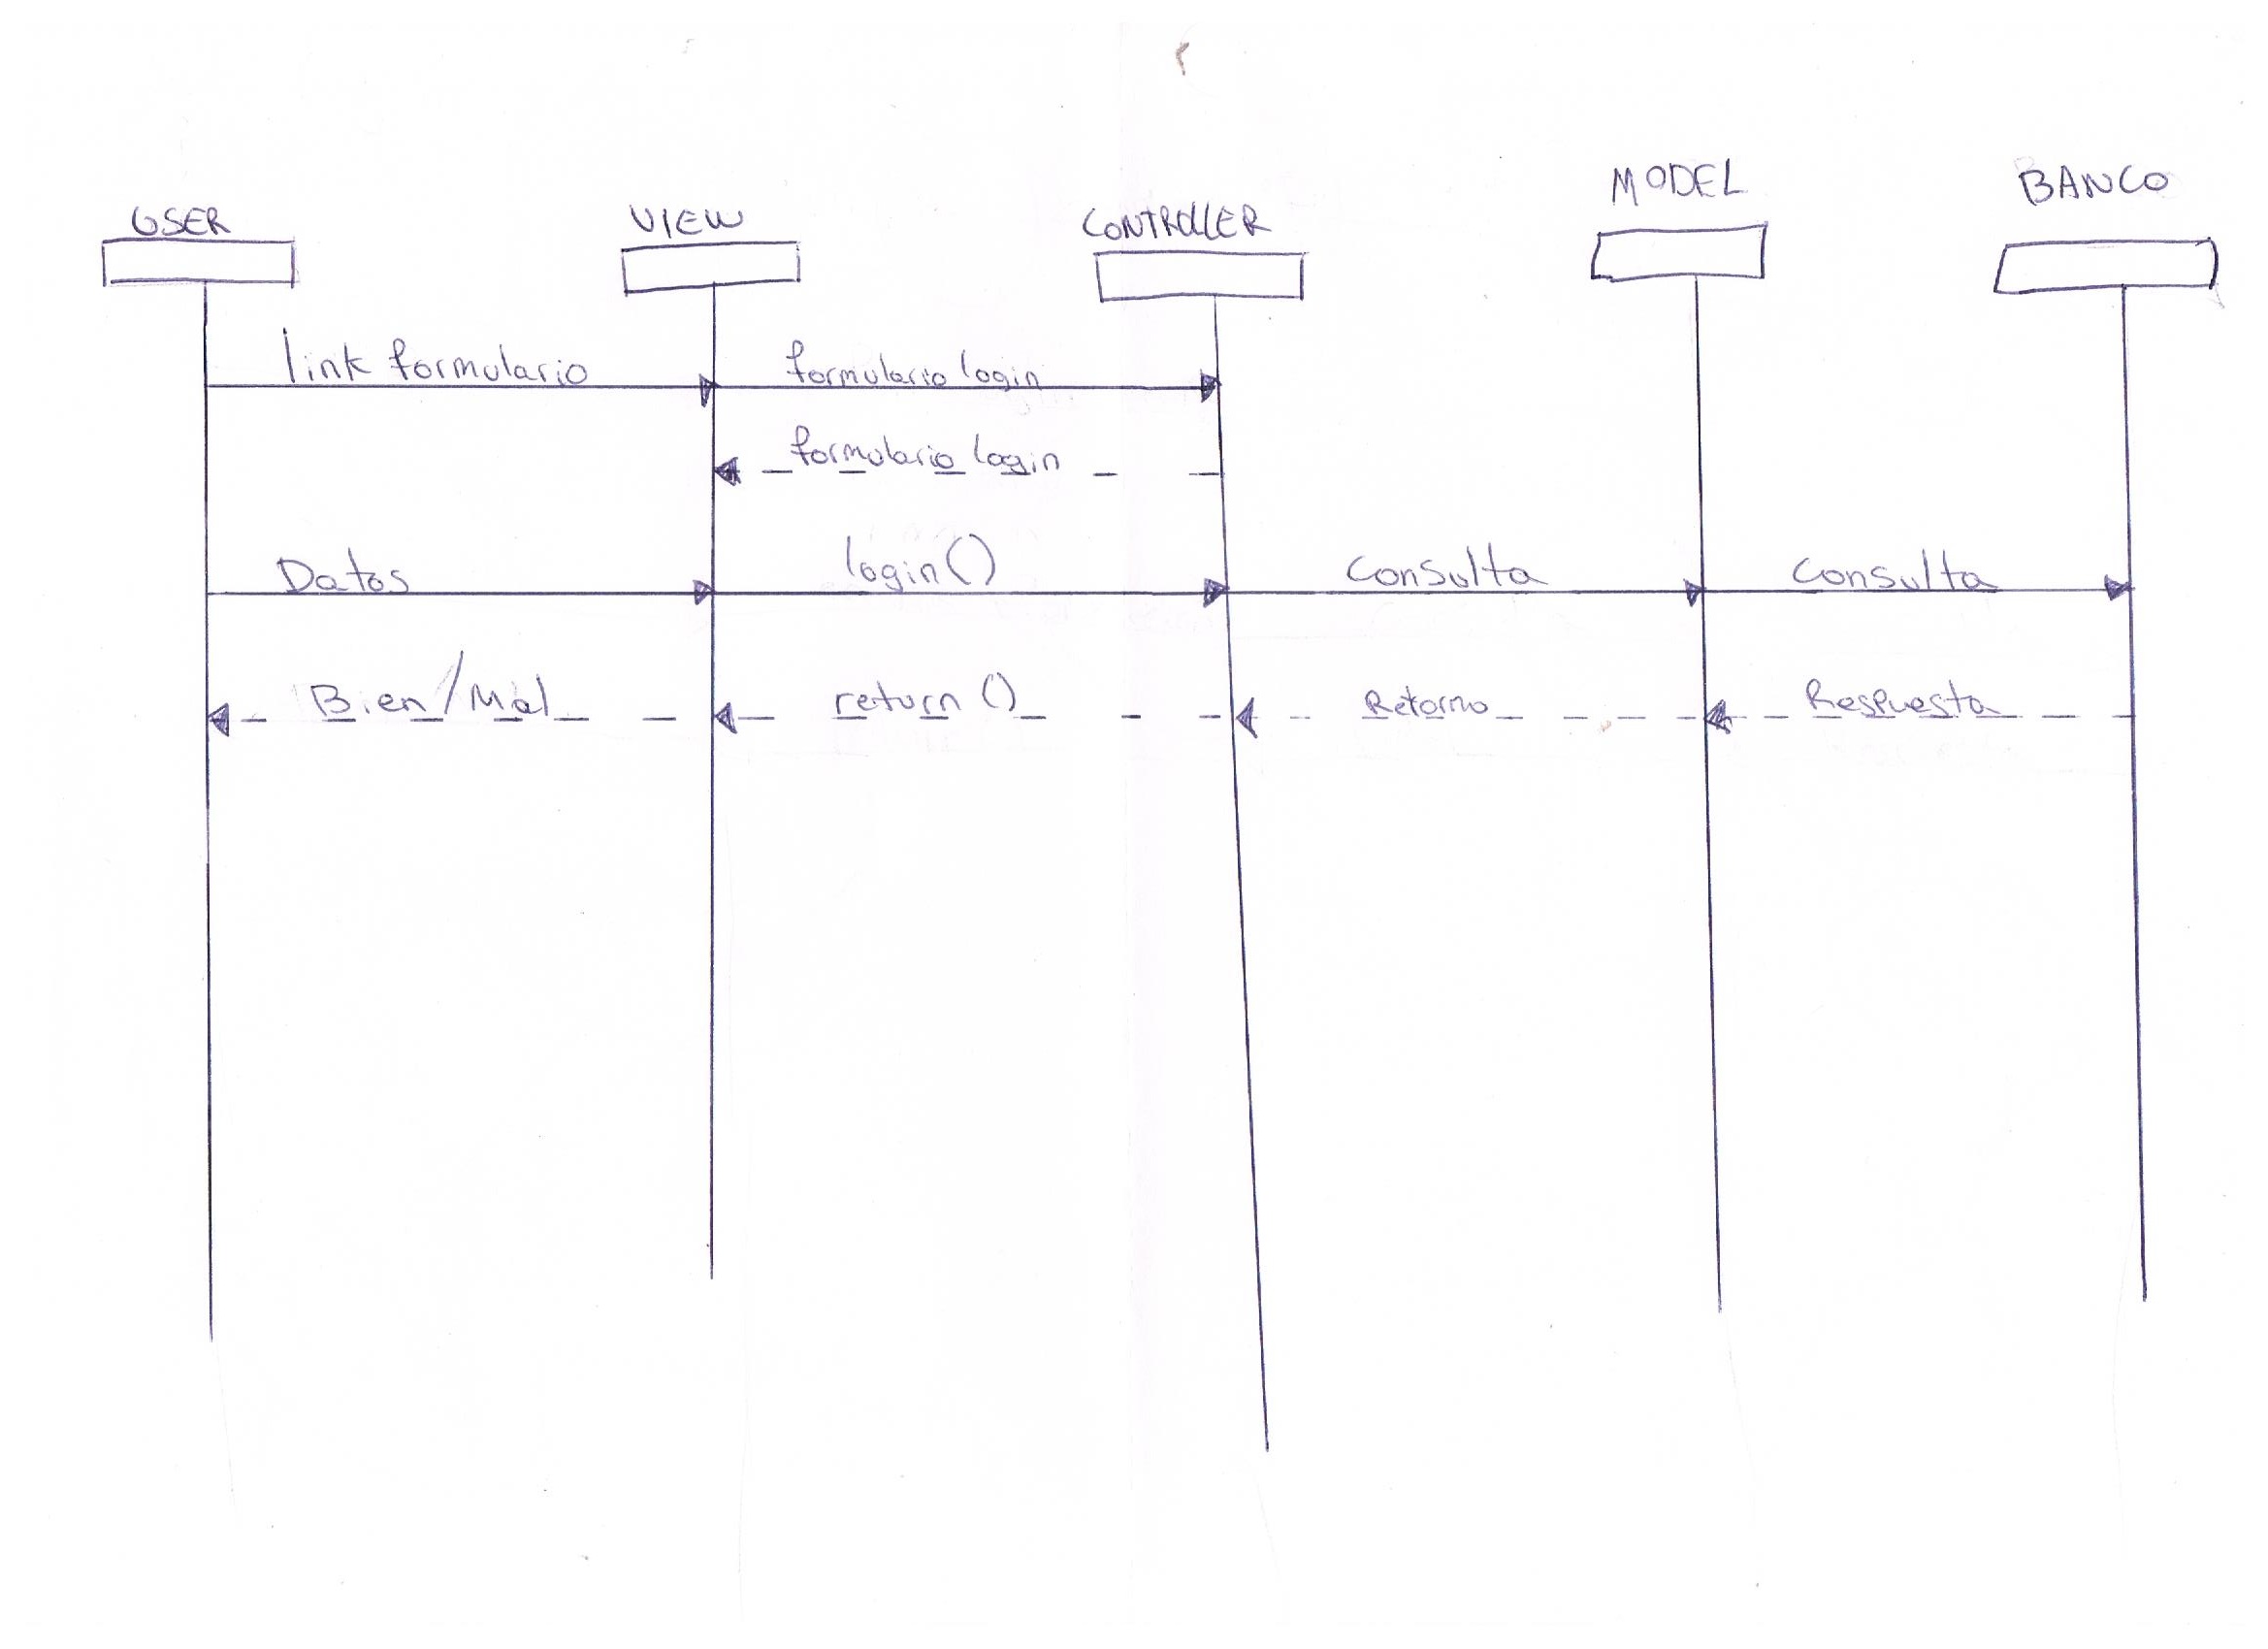 USER
VIEW
CONTROLLER
MODEL
BANCO
link formulario
formulario login
formulario login
Datos
login()
Consulta
Consulta
Bien/Mal
return()
Retorno
Respuesta